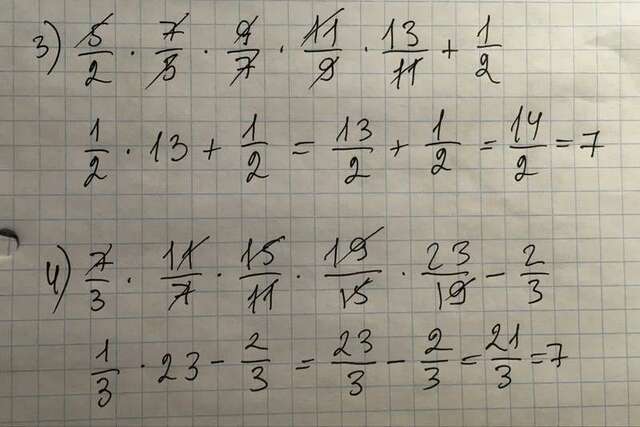 3) 5/2 · 7/5 · 9/7 · 11/9 · 13/11 + 1/2
1/2 · 13 + 1/2 = 13/2 + 1/2 = 14/2 = 7
4) 7/3 · 11/7 · 15/11 · 19/15 · 23/19 - 2/3
1/3 · 23 - 2/3 = 23/3 - 2/3 = 21/3 = 7